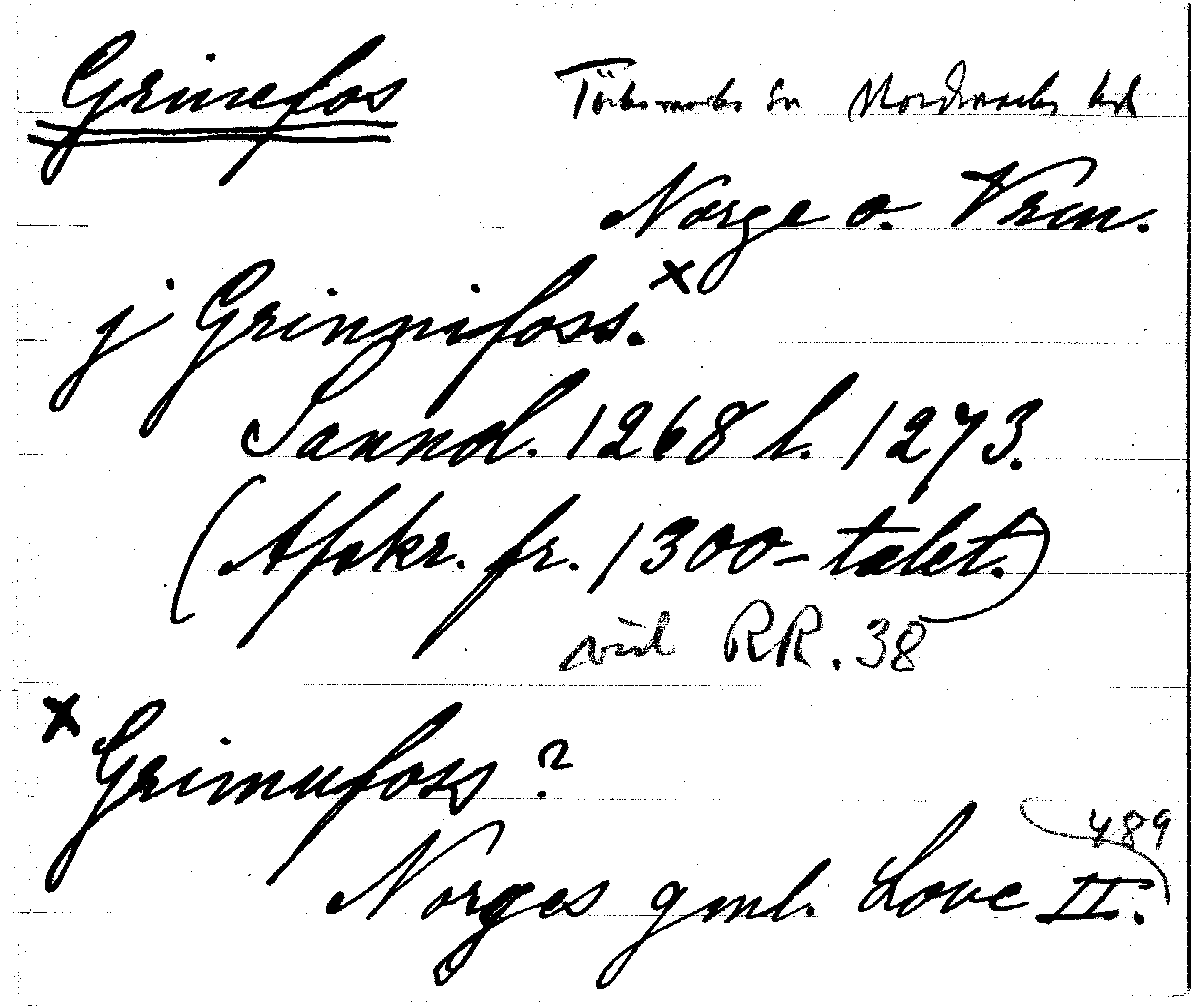 Grinefos
Töcksmarks sn Nordmarks hd
Norge o. Vrml.
j Grinnifoss.x
Sannol. 1268 l. 1273.
(Afskr. fr. 1300-talet.)
vid RR. 38
x Grimufoss?
489
Norges gml. Love II.